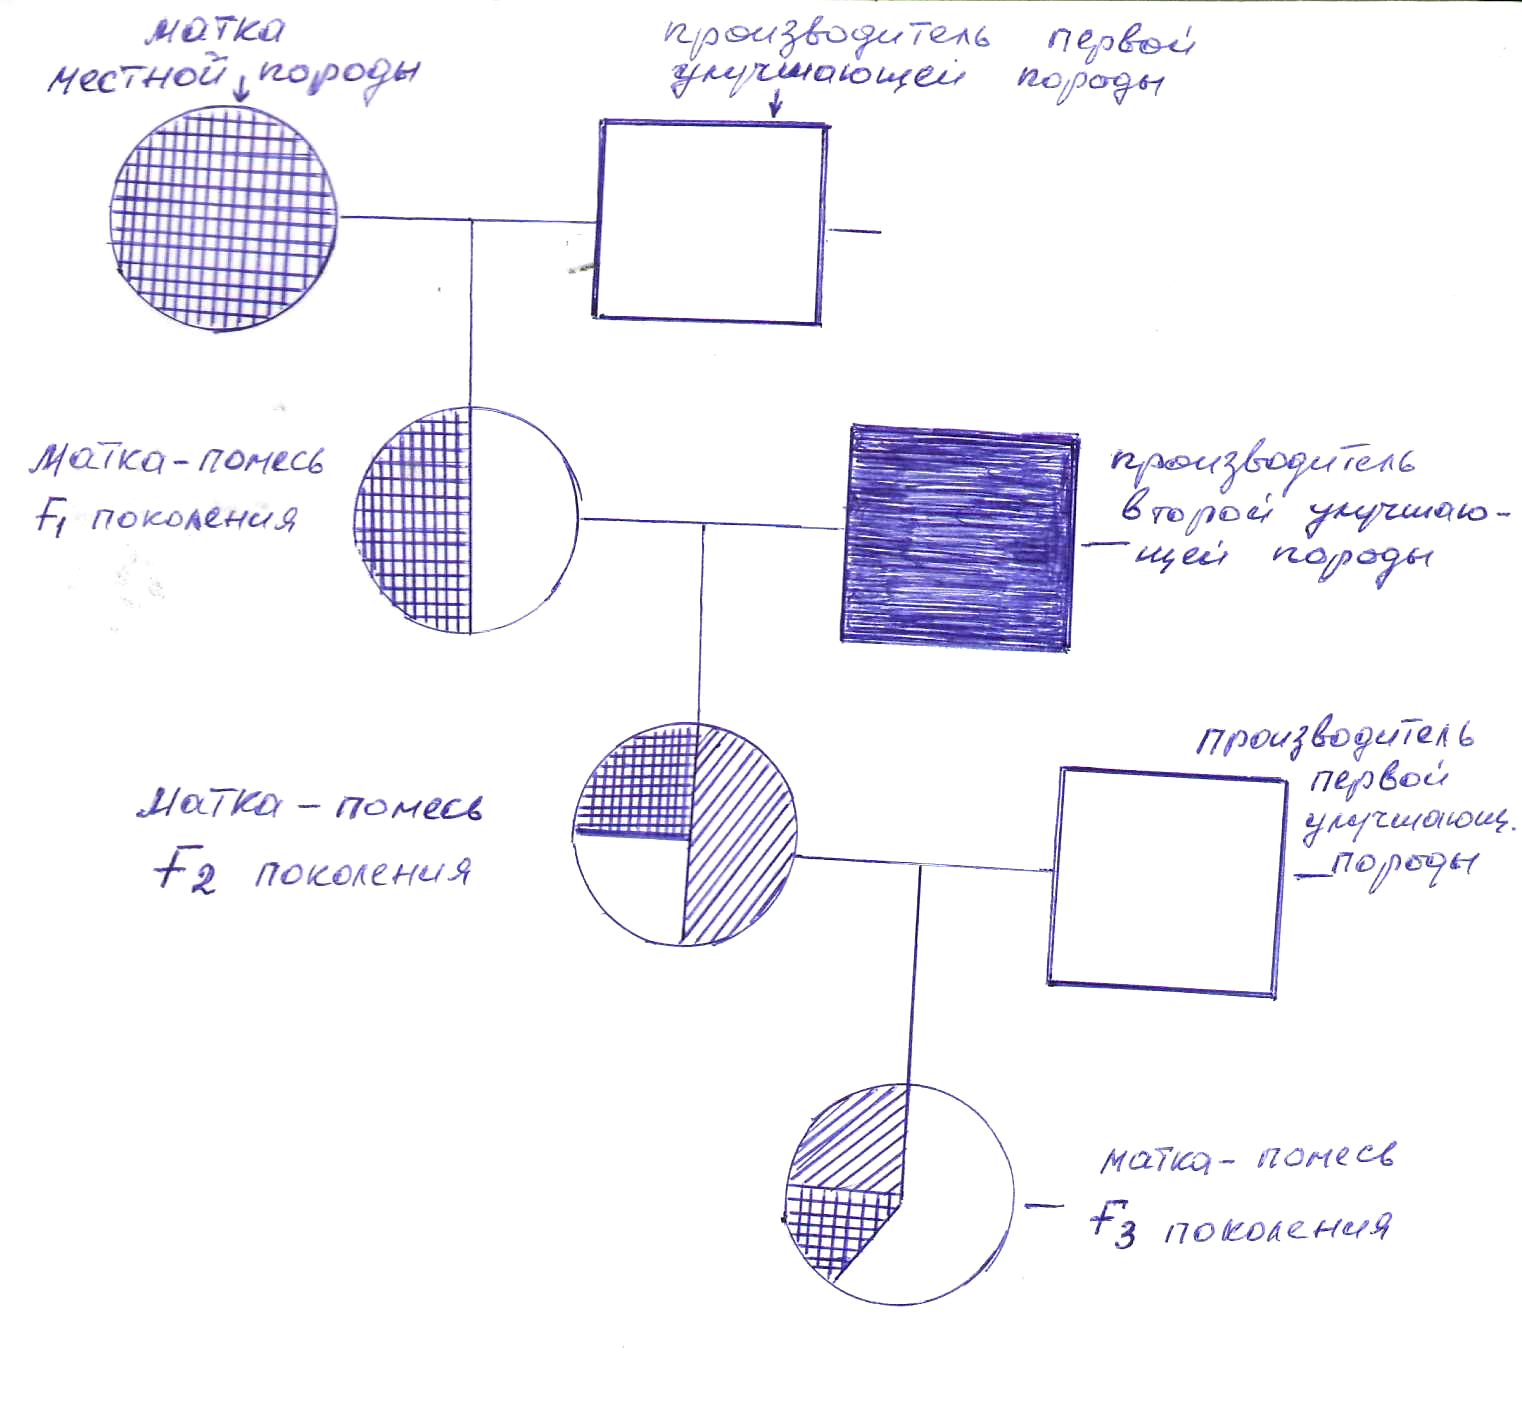 матка
местной породы
производитель первой
улучшающей породы
Матка-помесь
F1 поколения
производитель
второй улучшаю-
щей породы
Матка - помесь
F2 поколения
производитель
первой
улучшающ.
породы
матка - помесь
F3 поколения